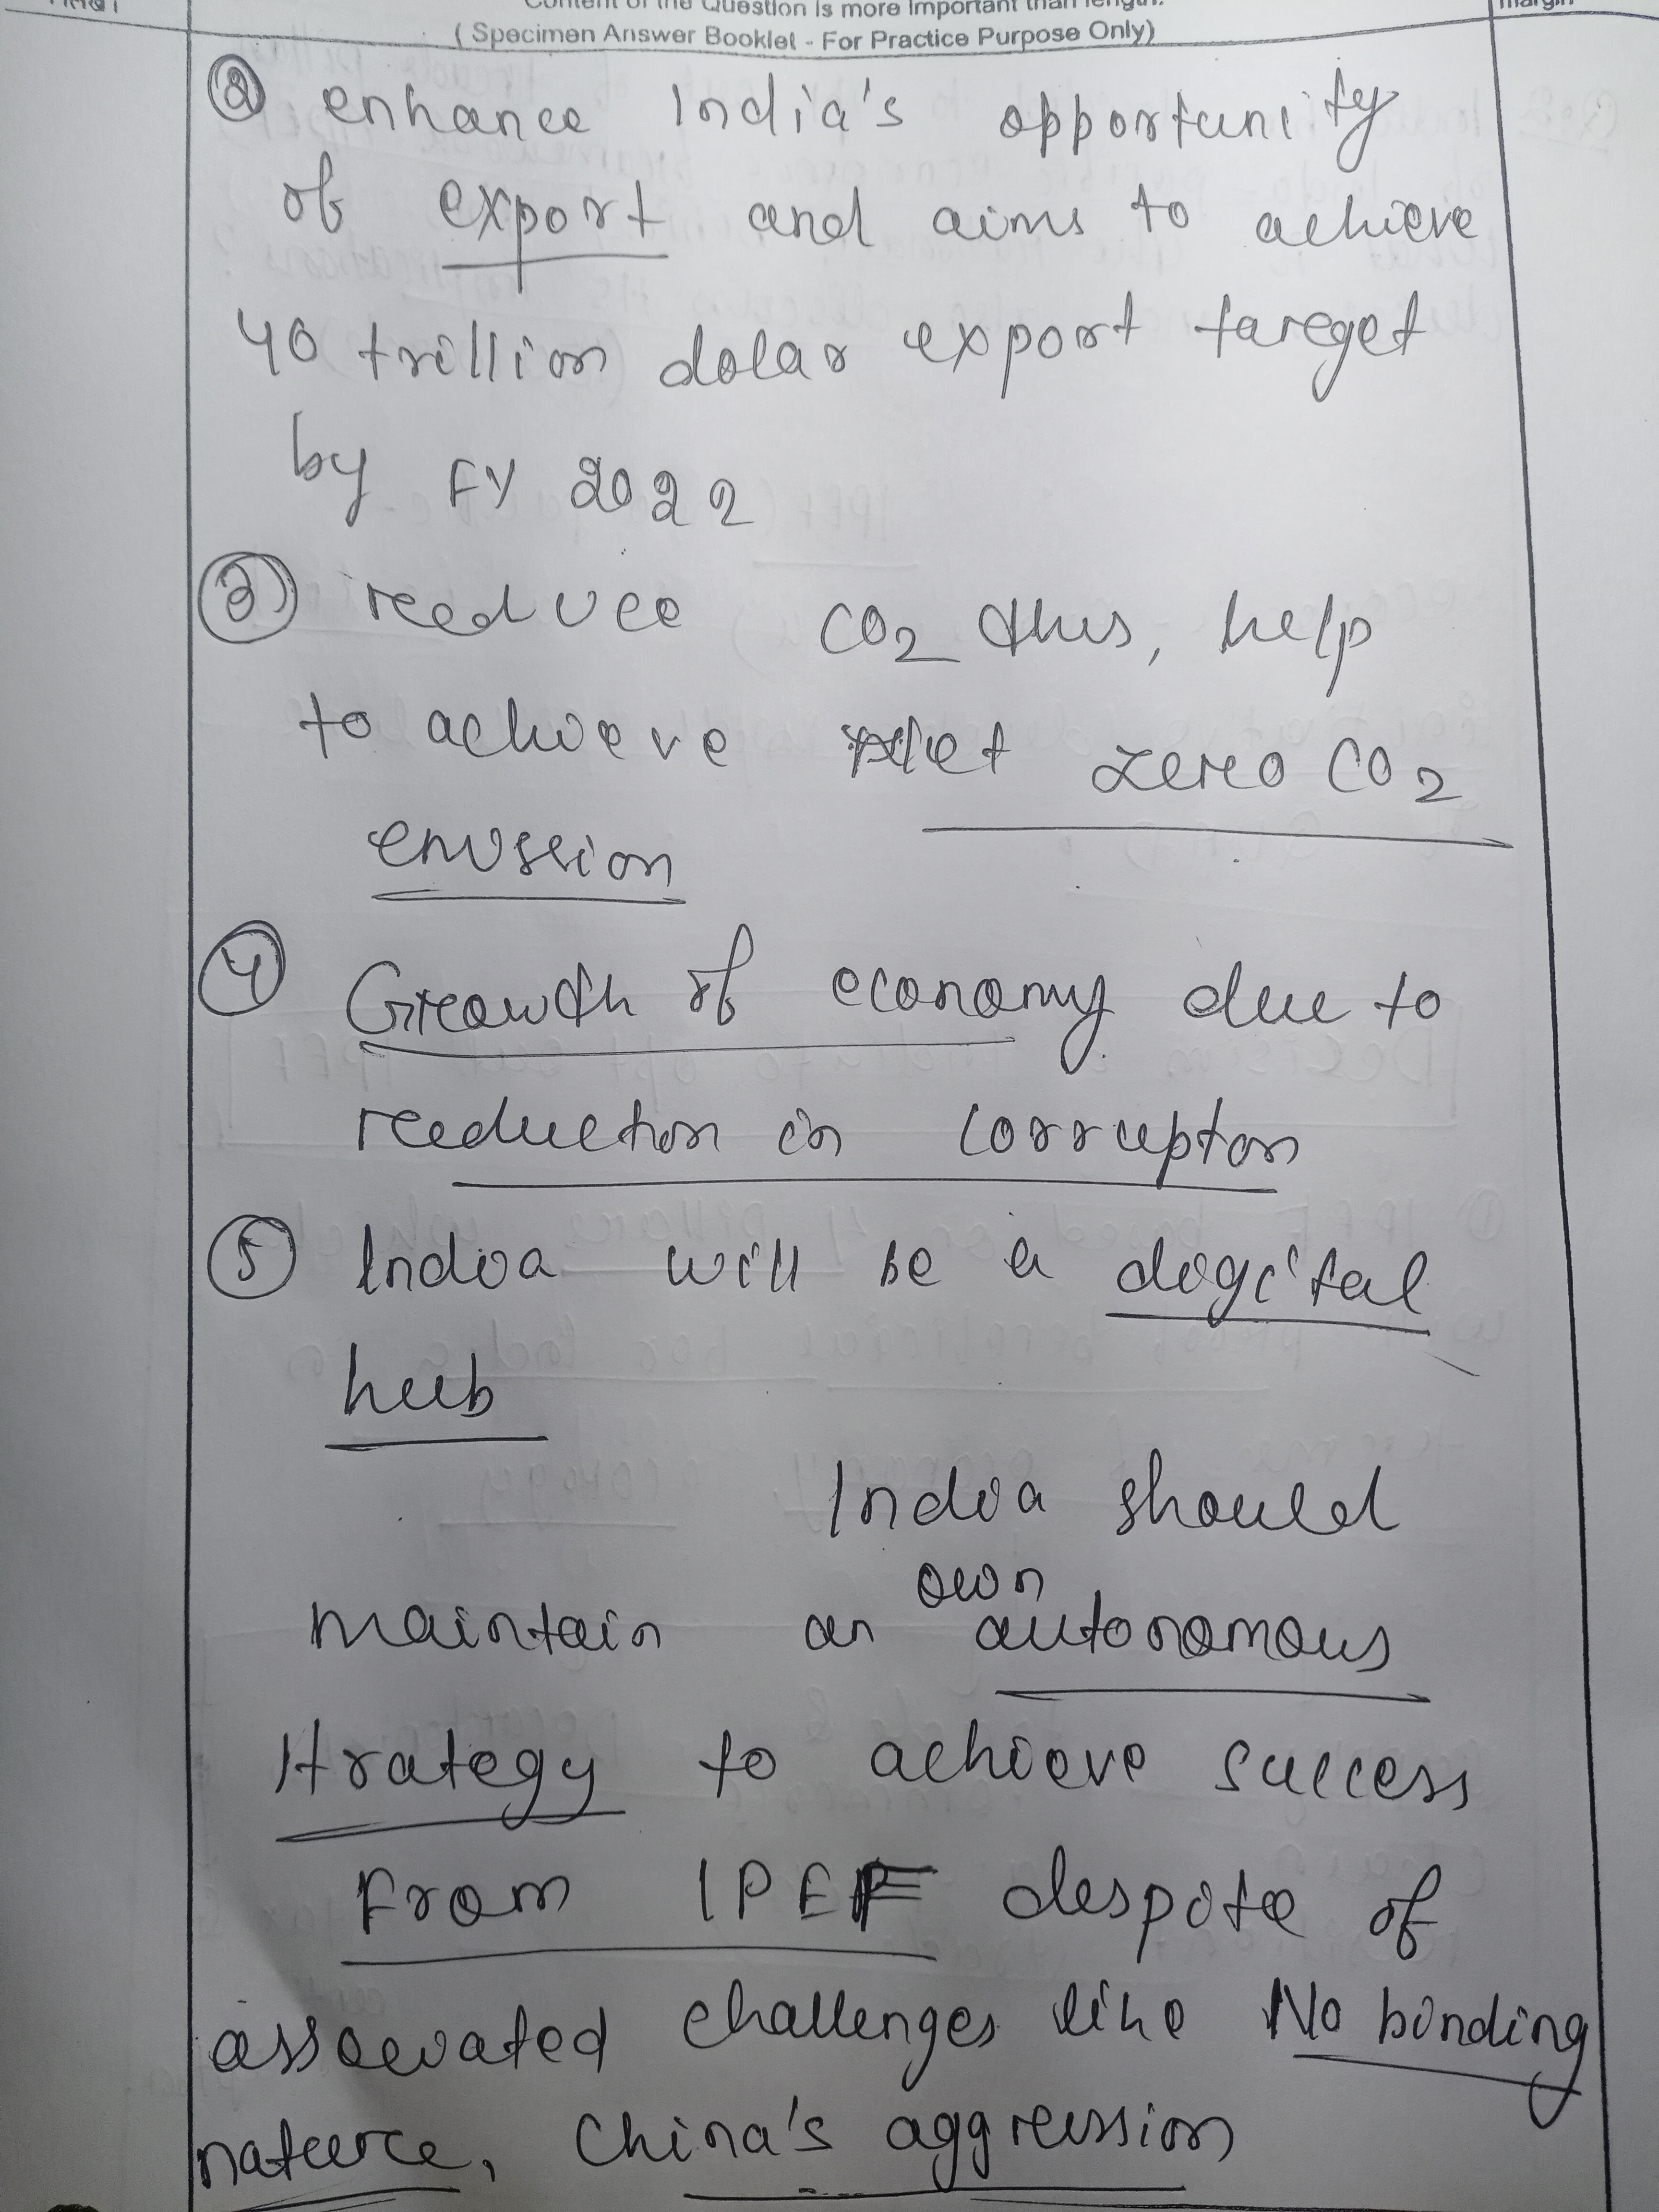 Content of the Question is more important than length.
( Specimen Answer Booklet - For Practice Purpose Only)
margin
② enhance India's opportunity
of export and aims to achieve
40 trillion dolar export tareget
by FY 2022
③ reeduce CO2 thus, help
to achieve Net zereo CO2
emission
④ Greowth of economy due to
reeduction in corruption
⑤ India will be a digital
hub
India should
own
maintain an autonomous
strategy to achieve success
From IPEF despite of
associated challenges like No binding
natuerce, China's aggression